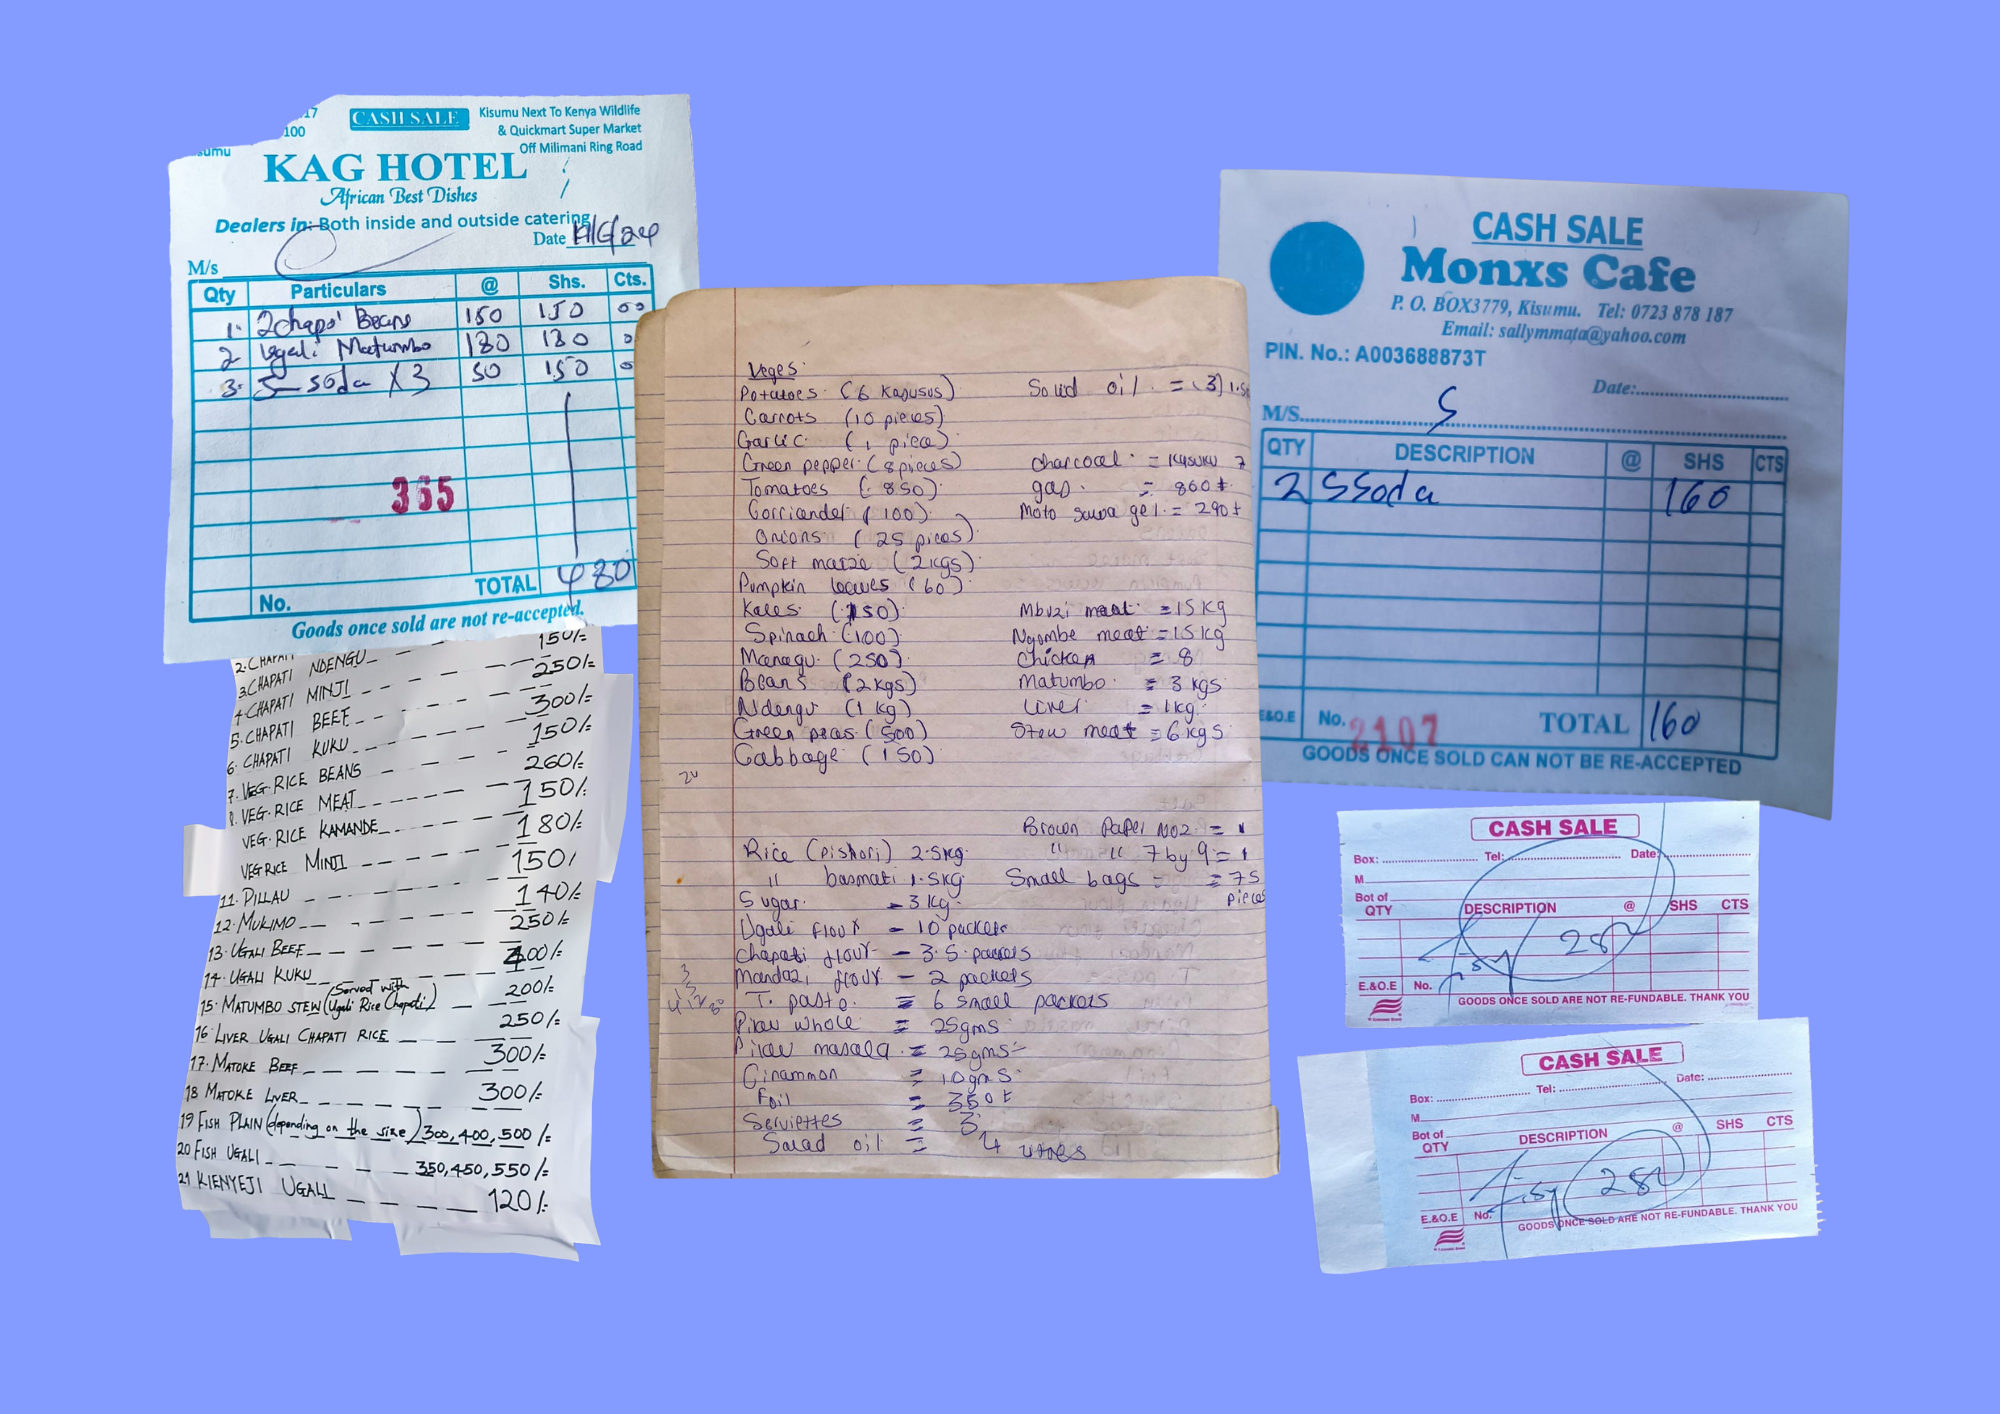 17
100
sumu
CASH SALE
Kisumu Next To Kenya Wildlife
& Quickmart Super Market
Off Milimani Ring Road
KAG HOTEL
African Best Dishes
Dealers in: Both inside and outside catering
Date
M/s
Qty Particulars @ Shs. Cts.
1. 2chaps' Beans 150 150 00
2 Ugali Matumbo 180 180 0
3. Soda X 3 50 150 0
365
TOTAL 480
No.
Goods once sold are not re-accepted.
2. CHAPATI 150/=
3. CHAPATI NDENGU
4 CHAPATI MINJI 250/=
5. CHAPATI BEEF 300/=
6. CHAPATI KUKU 150/=
7. VEG. RICE BEANS 260/=
8. VEG. RICE MEAT 150/=
VEG. RICE KAMANDE 180/=
VEG RICE MINJI 150/
11. PILLAU 140/=
12. MUKIMO 250/=
13. UGALI BEEF 400/=
14. UGALI KUKU 200/=
15. MATUMBO STEW (Served with Ugali Rice Chapati) 250/=
16 LIVER UGALI CHAPATI RICE 300/=
17. MATOKE BEEF 300/=
18 MATOKE LIVER
19 FISH PLAIN (depending on the size) 300, 400, 500/=
20 FISH UGALI 350, 450, 550/=
21 KIENYEJI UGALI 120/=
Veges.
Potatoes (6 Kasusus) Solid oil = (3) 1.5
Carrots (10 pieces)
Garlic (1 piece)
Green pepper (8 pieces) charcoal = 7
Tomatoes (850) gas = 860
Corriander (100) Moto sawa gel = 290
Onions (25 pices)
Soft maize (2kgs)
Pumpkin leaves (60)
Kales (150) Mbuzi meat = 15 Kg
Spinach (100) Ngombe meat = 15 Kg
Managu (250) Chicken = 8
Beans (2 kgs) Matumbo = 3 kgs
Ndengu (1 kg) Liver = 1kg
Green peas (500) Stew meat = 6 kgs
Cabbage (150)
20
Brown Paper NO2 = 1
Rice (pishori) 2.5kg " " 7 by 9 = 1
" basmati 1.5kg Small bags = 75 pieces
Sugar - 3 kg
Ugali flour - 10 packets
Chapati flour - 3.5 packets
Mandazi flour - 2 packets
T. paste = 6 small packets
Pilau whole = 25gms
Pilau masala = 25gms
Cinammon = 10gms
Foil = 350
Serviettes = 3
Salad oil = 4 litres
CASH SALE
Monxs Cafe
P. O. BOX3779, Kisumu. Tel: 0723 878 187
Email: sallymmata@yahoo.com
PIN. No.: A003688873T
Date:
M/S
QTY DESCRIPTION @ SHS CTS
2 Soda 160
E&O.E No. 2107 TOTAL 160
GOODS ONCE SOLD CAN NOT BE RE-ACCEPTED
CASH SALE
Box: Tel: Date:
M
Bot of
QTY DESCRIPTION @ SHS CTS
280
E.&O.E No.
GOODS ONCE SOLD ARE NOT RE-FUNDABLE. THANK YOU
CASH SALE
Box: Tel: Date:
M
Bot of
QTY DESCRIPTION @ SHS CTS
280
E.&O.E No.
GOODS ONCE SOLD ARE NOT RE-FUNDABLE. THANK YOU